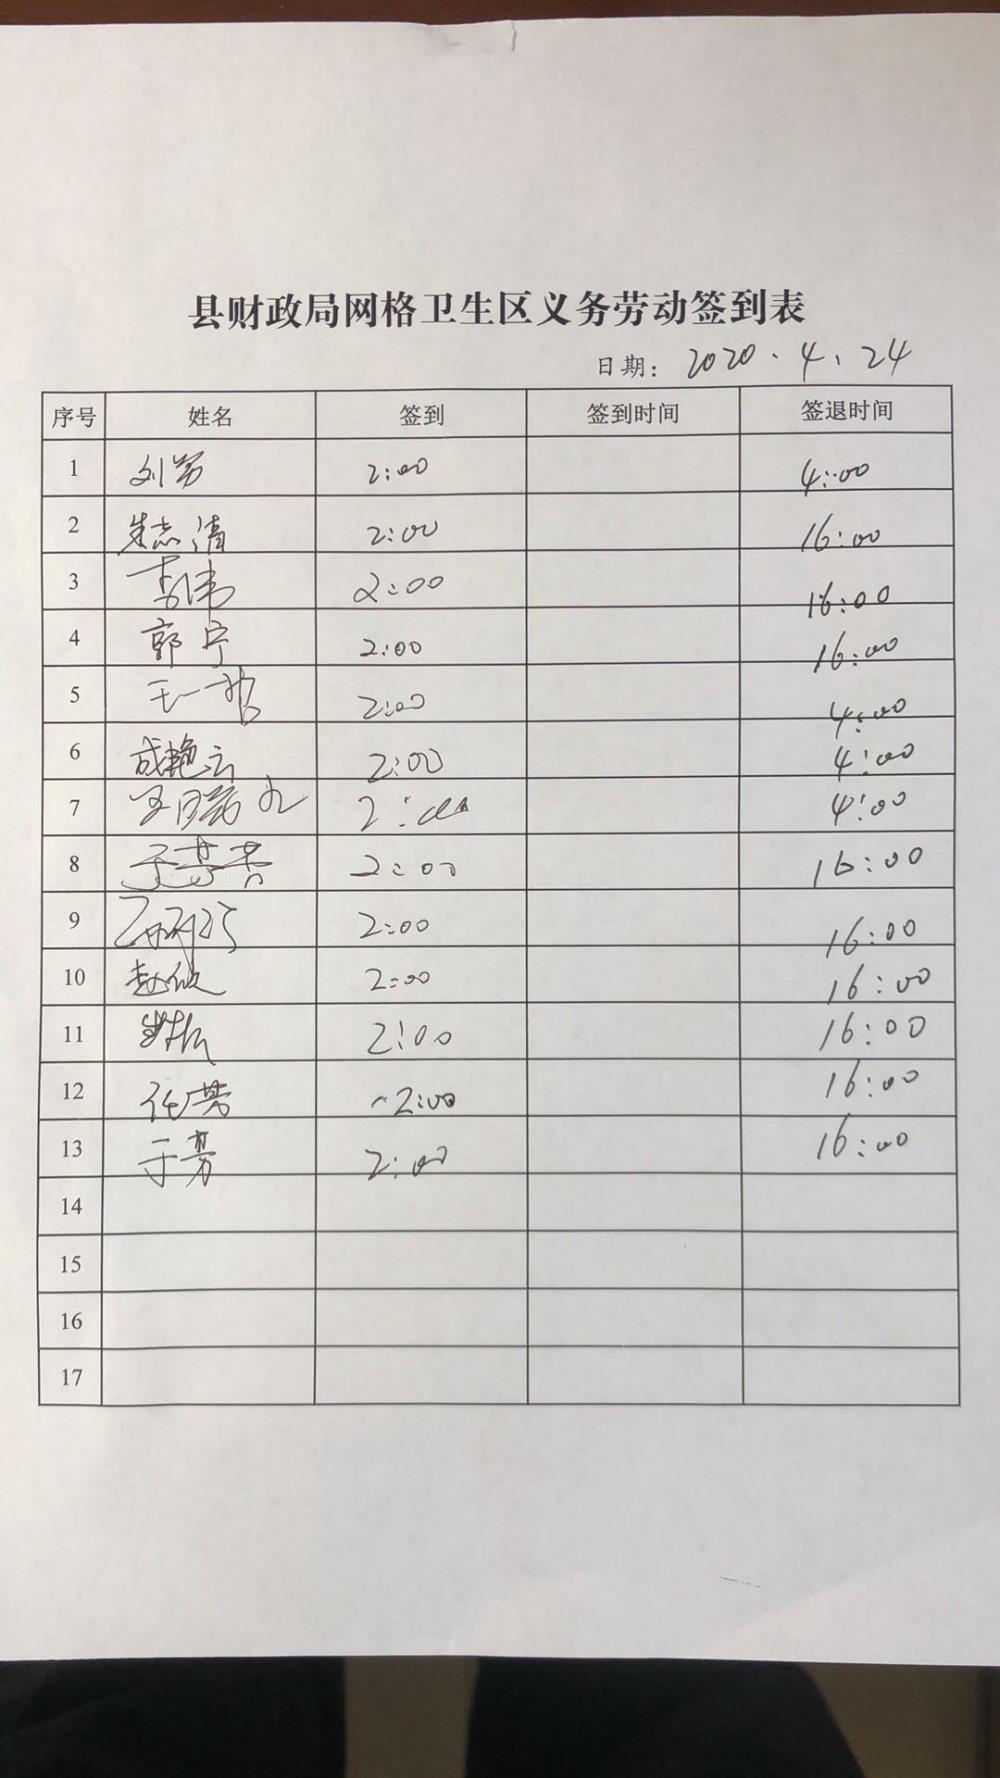 县财政局网格卫生区义务劳动签到表
日期： 2020.4.24
序号 姓名 签到 签到时间 签退时间
1 刘芳 2:00 4:00
2 朱志清 2:00 16:00
3 李伟 2:00 16:00
4 郭宁 2:00 16:00
5 王一 2:00 4:00
6 成艳云 2:00 4:00
7 2:00 4:00
8 2:00 16:00
9 2:00 16:00
10 赵 2:00 16:00
11 2:00 16:00
12 任芳 2:00 16:00
13 于芳 2:00 16:00
14
15
16
17